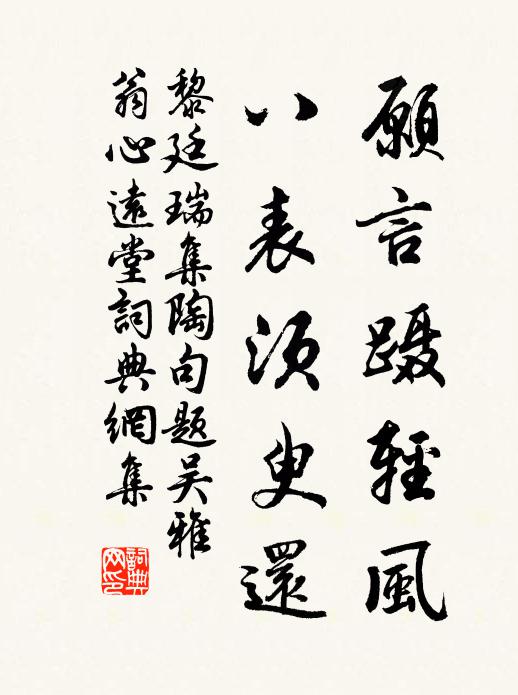 願言蹑輕風
八表须臾還
黎廷瑞集陶句題吴雅
翁心遠堂詞典網集
詞典网印